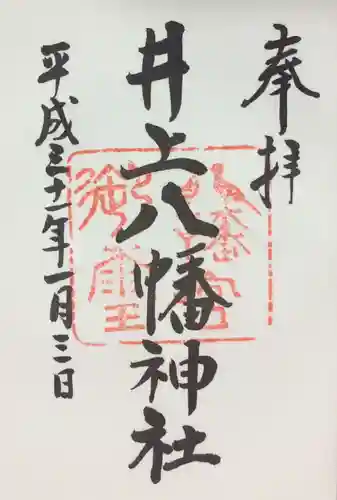 奉拝
井上八幡神社
平成三十一年一月三日